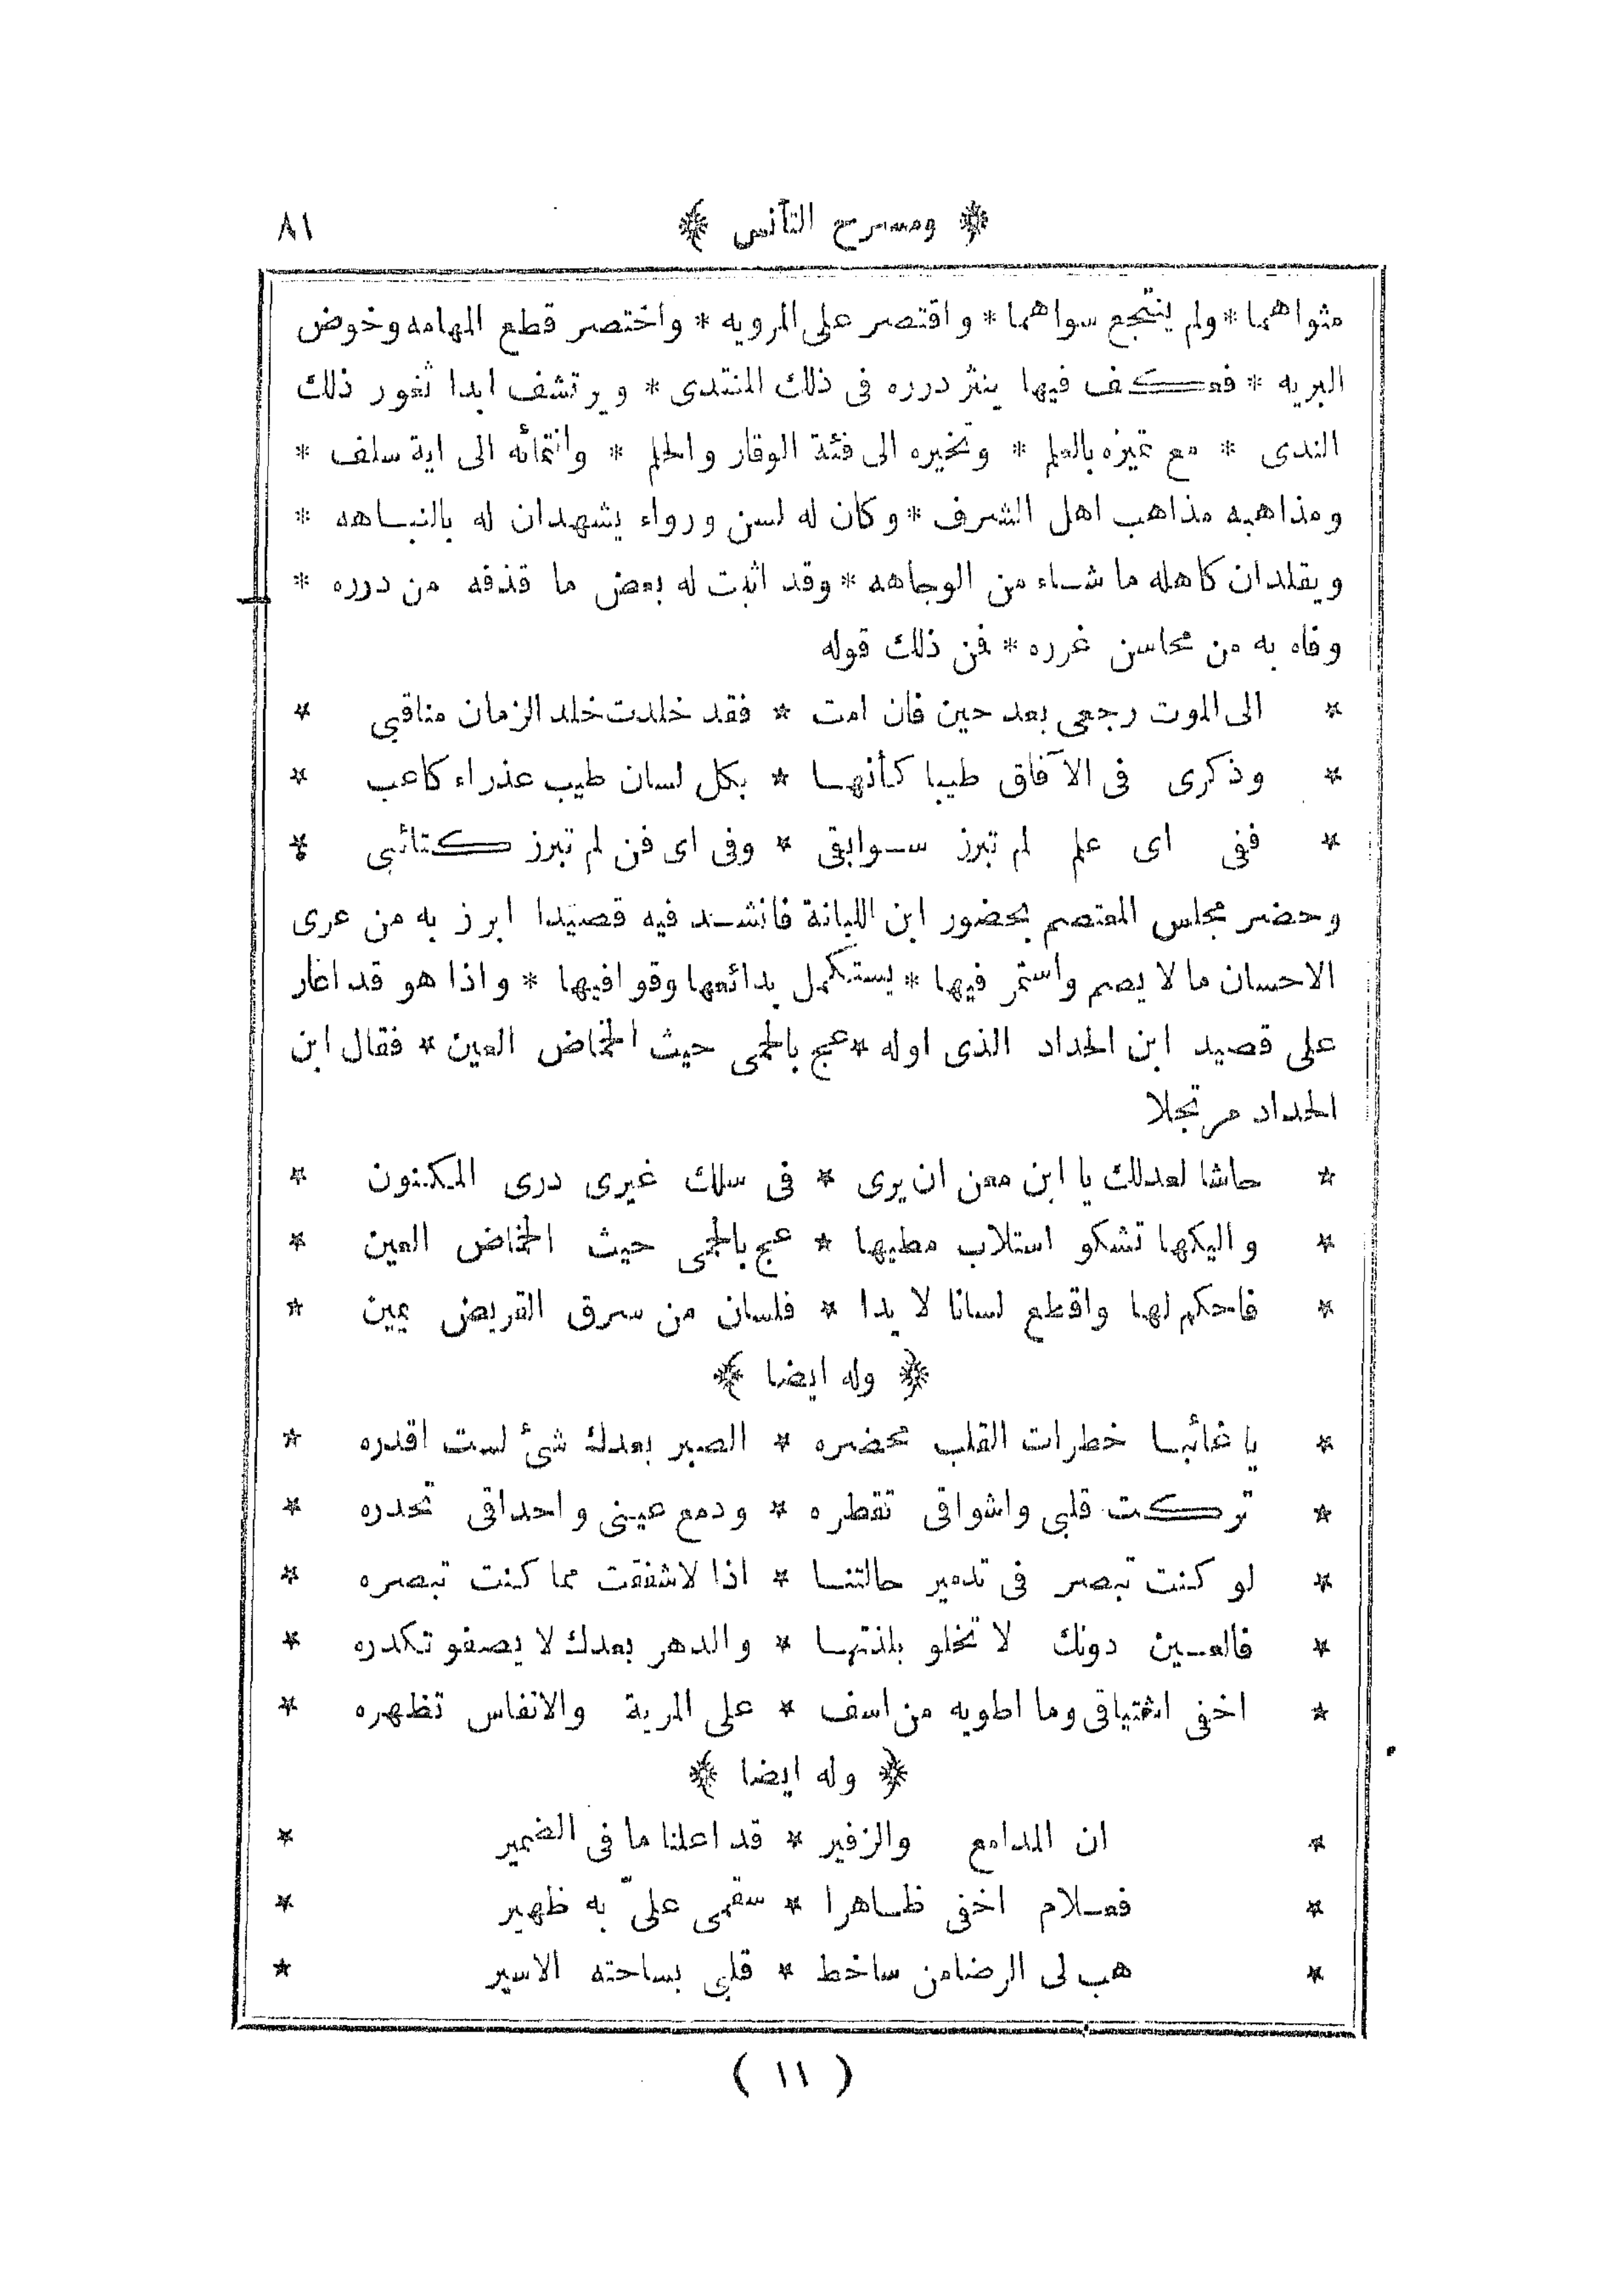 ﴿ ومسرح التأنس ﴾ ٨١
مثواهما * ولم ينتجع سواهما * واقتصر على المرويه * واختصر قطع المهامه وخوض
البريه * فعكف فيها ينثر درره فى ذلك المنتدى * ويرتشف ابدا ثغور ذلك
الندى * مع تميزه بالعلم * وتحيزه الى فئة الوقار والحلم * وانتمائه الى اية سلف *
ومذاهبه مذاهب اهل الشرف * وكان له لسن ورواء يشهدان له بالنباهه *
ويقلدان كاهله ما شاء من الوجاهه * وقد اثبت له بعض ما قذفه من درره *
وفاه به من محاسن غرره * فمن ذلك قوله
* الى الموت رجعى بعد حين فان امت * فقد خلدت خلد الزمان مناقبى *
* وذكرى فى الآفاق طيبا كأنها * بكل لسان طيب عذراء كاعب *
* ففى اى علم لم تبرز سوابقى * وفى اى فن لم تبرز كتائبى *
وحضر مجلس المعتصم بحضور ابن اللبانة فانشد فيه قصيدا ابرز به من عرى
الاحسان ما لا يصم واستمر فيها * يستكمل بدائعها وقوافيها * واذا هو قد اغار
على قصيد ابن الحداد الذى اوله * عج بالحمى حيث الخماض العين * فقال ابن
الحداد مرتجلا
* حاشا لعدلك يا ابن معن ان يرى * فى سلك غيرى درى المكنون *
* واليكها تشكو استلاب مطيها * عج بالحمى حيث الخماض العين *
* فاحكم لها واقطع لسانا لا يدا * فلسان من سرق القريض يمين *
﴿ وله ايضا ﴾
* يا غائبا خطرات القلب محضره * الصبر بعدك شئ لست اقدره *
* تركت قلبى واشواقى تقطره * ودمع عينى واحداقى تحدره *
* لو كنت تبصر فى تدمير حالتنا * اذا لاشفقت مما كنت تبصره *
* فالعين دونك لا تخلو بلذتها * والدهر بعدك لا يصفو تكدره *
* اخفى اشتياقى وما اطويه من اسف * على المرية والانفاس تظهره *
﴿ وله ايضا ﴾
* ان المدامع والزفير * قد اعلنا ما فى الضمير *
* فعلام اخفى ظاهرا * سقمى علىّ به ظهير *
* هب لى الرضا من ساخط * قلبى بساحته الاسير *
( ١١ )